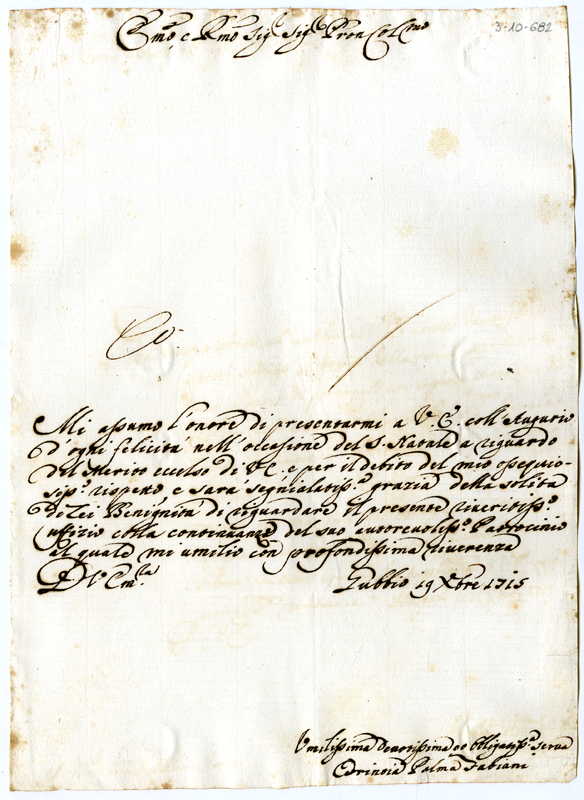 Emo, e Rmo Sig.r Sig.r Pron Colmo
3-10-682
Mi assumo l'onore di presentarmi a V. E. coll'Augurio
d'ogni felicità nell'occasione del S. Natale a riguardo
del Merito eccelso di V E. e per il debito del mio ossequio-
siss.o rispetto, e sarà segnialatiss.a grazia della solita
di Lei Benignità di riguardare il presente riveritiss.o
uffizio colla continuanza del suo autorevoliss.o Patrocinio
al quale mi umilio con profondissima riverenza
D V Em.za
Gubbio 19 Xbre 1715
Umilissima Devotissima ed obligatiss.a Serva
Palma Fabiani